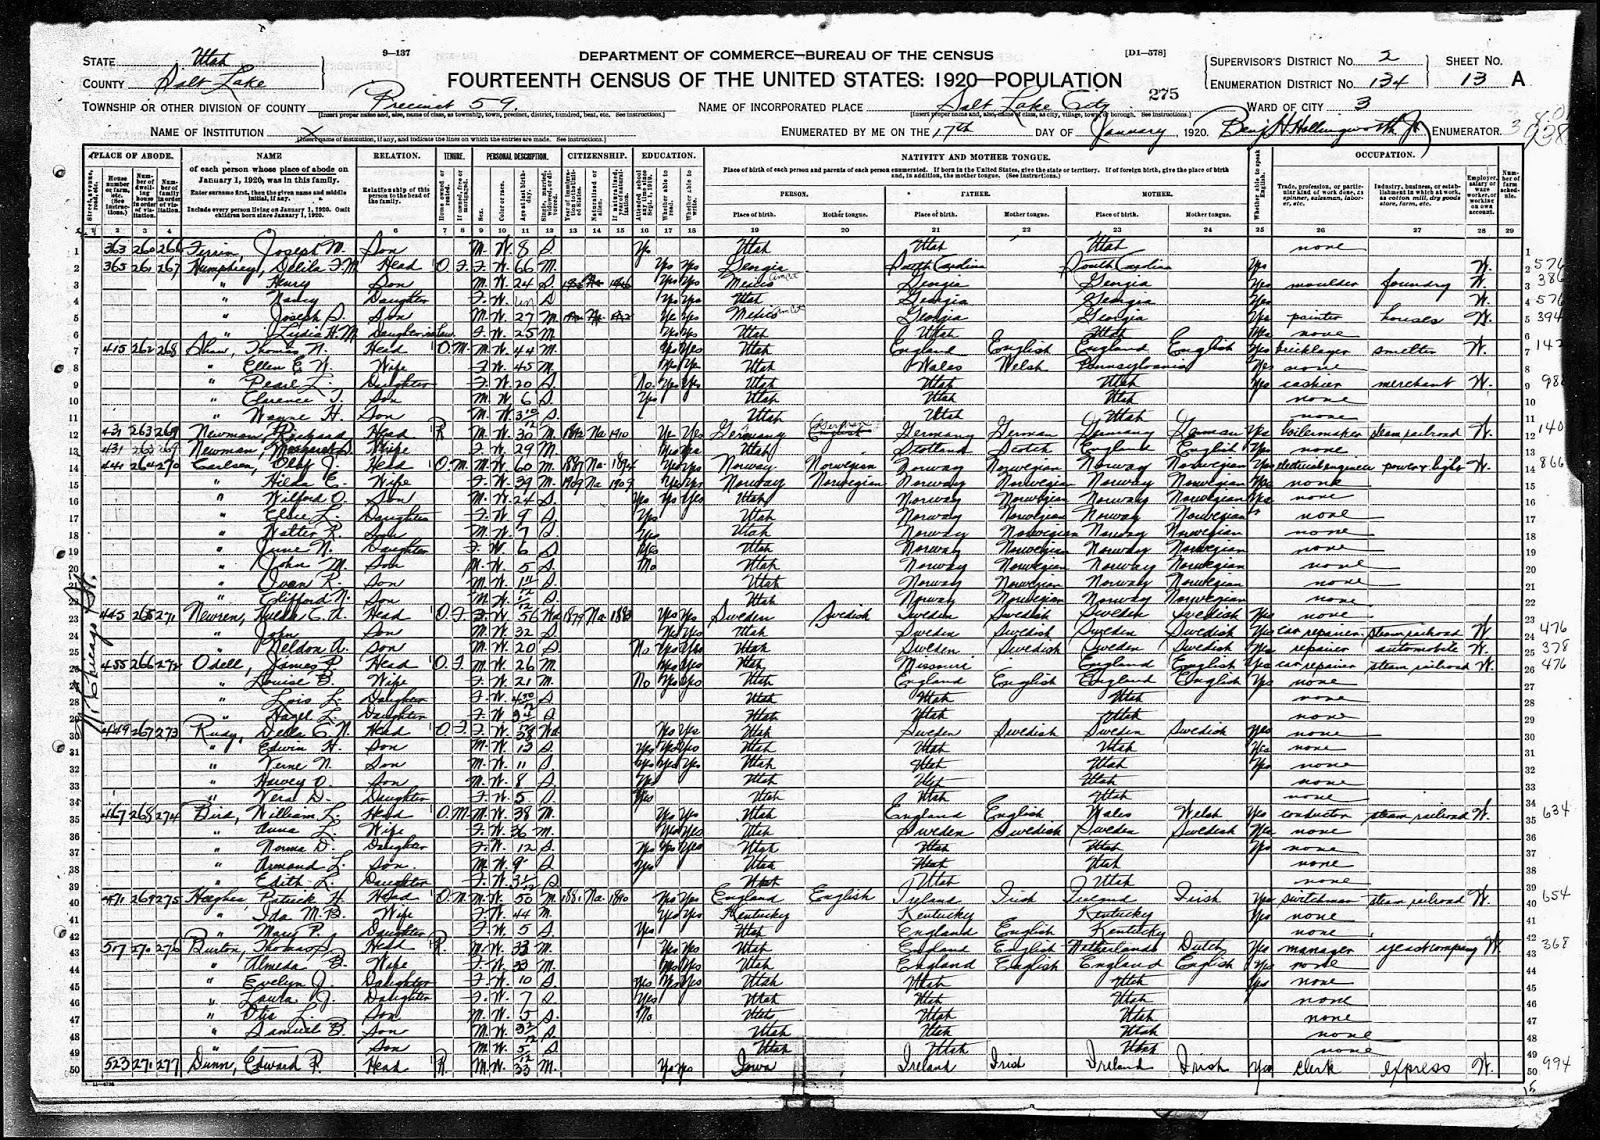 9-137
[D1-578]
DEPARTMENT OF COMMERCE—BUREAU OF THE CENSUS
FOURTEENTH CENSUS OF THE UNITED STATES: 1920—POPULATION
STATE Utah
COUNTY Salt Lake
TOWNSHIP OR OTHER DIVISION OF COUNTY Precinct 59
NAME OF INSTITUTION X
NAME OF INCORPORATED PLACE Salt Lake City
275
ENUMERATED BY ME ON THE 17th DAY OF January, 1920. Benj H Hollingworth Jr ENUMERATOR.
SUPERVISOR'S DISTRICT No. 2
ENUMERATION DISTRICT No. 134
SHEET No. 13 A
WARD OF CITY 3
PLACE OF ABODE. NAME RELATION. TENURE. PERSONAL DESCRIPTION. CITIZENSHIP. EDUCATION. NATIVITY AND MOTHER TONGUE. OCCUPATION.
of each person whose place of abode on January 1, 1920, was in this family.
Enter surname first, then the given name and middle initial, if any.
Include every person living on January 1, 1920. Omit children born since January 1, 1920.
Relationship of this person to the head of the family.
Place of birth of each person and parents of each person enumerated. If born in the United States, give the state or territory. If of foreign birth, give the place of birth and, in addition, the mother tongue. (See instructions.)
PERSON. FATHER. MOTHER.
Place of birth. Mother tongue. Place of birth. Mother tongue. Place of birth. Mother tongue.
1 363 260 266 Joseph M. Son M. W. 8 S Yes Utah Utah Utah none
2 365 261 267 Humphrey, Delila F. M Head O. F. F. W. 66 M. Yes Yes Georgia South Carolina South Carolina Yes W.
3 " Henry Son M. W. 24 S Yes Yes Mexico Georgia Georgia Yes moulder foundry W.
4 " Nancy Daughter F. W. Yes Yes Utah Georgia Georgia Yes W.
5 " Joseph S. Son M. W. 27 M. Yes Yes Mexico Georgia Georgia Yes painter houses W.
6 " Lydia H. M Daughter in Law F. W. 25 M. Yes Yes Utah Utah Utah Yes none
7 415 262 268 Shaw, Thomas N. Head O. M. M. W. 44 M. Yes Yes Utah England English England English Yes bricklayer smelter W.
8 " Ellen E. W. Wife F. W. 45 M. Yes Yes Utah Wales Welsh Pennsylvania Yes none
9 " Pearl L. Daughter F. W. 20 S No Yes Yes Utah Utah Utah Yes cashier merchant W.
10 " Clarence T. Son M. W. 6 S Yes Utah Utah Utah none
11 " Wayne H. Son M. W. 3 10/12 S. Utah Utah Utah none
12 431 263 269 Newman, Richard Head R M. W. 30 M. 1892 Na 1910 Yes Yes Germany German Germany German Germany German Yes boilermaker steam railroad W.
13 431 263 269 Newman, Margaret S. Wife F. W. 29 M. Yes Yes Utah Scotland Scotch England English Yes none
14 441 264 270 Carlson, Olof J. Head O. M. M. W. 60 M. 1887 Na. 1894 Yes Yes Norway Norwegian Norway Norwegian Norway Norwegian Yes electrical engineer power & light W.
15 " Hilda C. Wife F. W. 39 M. 1909 Na 1909 Yes Yes Norway Norwegian Norway Norwegian Norway Norwegian Yes none
16 " Wilford O. Son M. W. 24 S. Yes Yes Yes Utah Norway Norwegian Norway Norwegian Yes none
17 " Elsie L. Daughter F. W. 9 S Yes Utah Norway Norwegian Norway Norwegian none
18 " Walter R. Son M. W. 7 S Yes Utah Norway Norwegian Norway Norwegian none
19 " June N. Daughter F. W. 6 S Yes Utah Norway Norwegian Norway Norwegian none
20 " John M. Son M. W. 5 S No Utah Norway Norwegian Norway Norwegian none
21 " Ivan R. Son M. W. 1 11/12 S. Utah Norway Norwegian Norway Norwegian none
22 " Clifford N. Son M. W. S. Utah Norway Norwegian Norway Norwegian none
23 445 265 271 Newren, Hulda C. A. Head O. F. F. W. 56 Wd 1879 Na 1883 Yes Yes Sweden Swedish Sweden Swedish Sweden Swedish Yes none
24 " John Son M. W. 32 S Yes Yes Utah Sweden Swedish Sweden Swedish Yes car repairer steam railroad W
25 " Weldon A. Son M. W. 20 S No Yes Yes Utah Sweden Swedish Sweden Swedish Yes repairer automobile W.
26 455 266 272 Odell, James P. Head O. F. M. W. 26 M. Yes Yes Utah Missouri England English Yes car repairer steam railroad W.
27 " Louise B. Wife F. W. 21 M. No Yes Yes Utah England English England English Yes none
28 " Lois L. Daughter F. W. S Utah Utah Utah none
29 " Hazel L. Daughter F. W. S Utah Utah Utah none
30 449 267 273 Rudy, Della C. N. Head O. F. F. W. 38 Wd. Yes Yes Utah Sweden Swedish Sweden Swedish Yes none
31 " Edwin H. Son M. W. 13 S Yes Yes Yes Utah Utah Utah Yes none
32 " Verne N. Son M. W. 11 S Yes Yes Yes Utah Utah Utah Yes none
33 " Harvey O. Son M. W. 8 S Yes Utah Utah Utah none
34 " Vera D. Daughter F. W. 5 S Yes Utah Utah Utah none
35 467 268 274 Bird, William L. Head O. M. M. W. 38 M. Yes Yes Utah England English Wales Welsh Yes conductor steam railroad W.
36 " Anna L. Wife F. W. 36 M. Yes Yes Utah Sweden Swedish Sweden Swedish Yes none
37 " Norma D. Daughter F. W. 12 S Yes Yes Yes Utah Utah Utah Yes none
38 " Armand L. Son M. W. 9 S Yes Utah Utah Utah none
39 " Edith L. Daughter F. W. S Utah Utah Utah none
40 471 269 275 Hughes, Patrick H. Head O. M. M. W. 50 M. 1881 Na. 1890 Yes Yes England English Ireland Irish Ireland Irish Yes switchman steam railroad W.
41 " Ida M. B. Wife F. W. 44 M. Yes Yes Kentucky Kentucky Kentucky Yes none
42 " Mary P. Daughter F. W. 5 S Yes Utah England English Kentucky none
43 517 270 276 Burton, Thomas S. Head R. M. W. 33 M. Yes Yes Utah England English Netherlands Dutch Yes manager yeast company W.
44 " Almeda B. Wife F. W. 33 M. Yes Yes Utah England English England English Yes none
45 " Evelyn J. Daughter F. W. 10 S Yes Yes Yes Utah Utah Utah Yes none
46 " Laura J. Daughter F. W. 7 S Yes Utah Utah Utah none
47 " Otis L. Son M. W. 5 S No Utah Utah Utah none
48 " Samuel B. Son M. W. S. Utah Utah Utah none
49 " Son M. W. 5/12 S. Utah Utah Utah none
50 523 271 277 Dunn, Edward P. Head R. M. W. 33 M. Yes Yes Iowa Ireland Irish Ireland Irish Yes clerk express W.
576
386
576
394
142
140
866
476
378
476
634
654
368
994